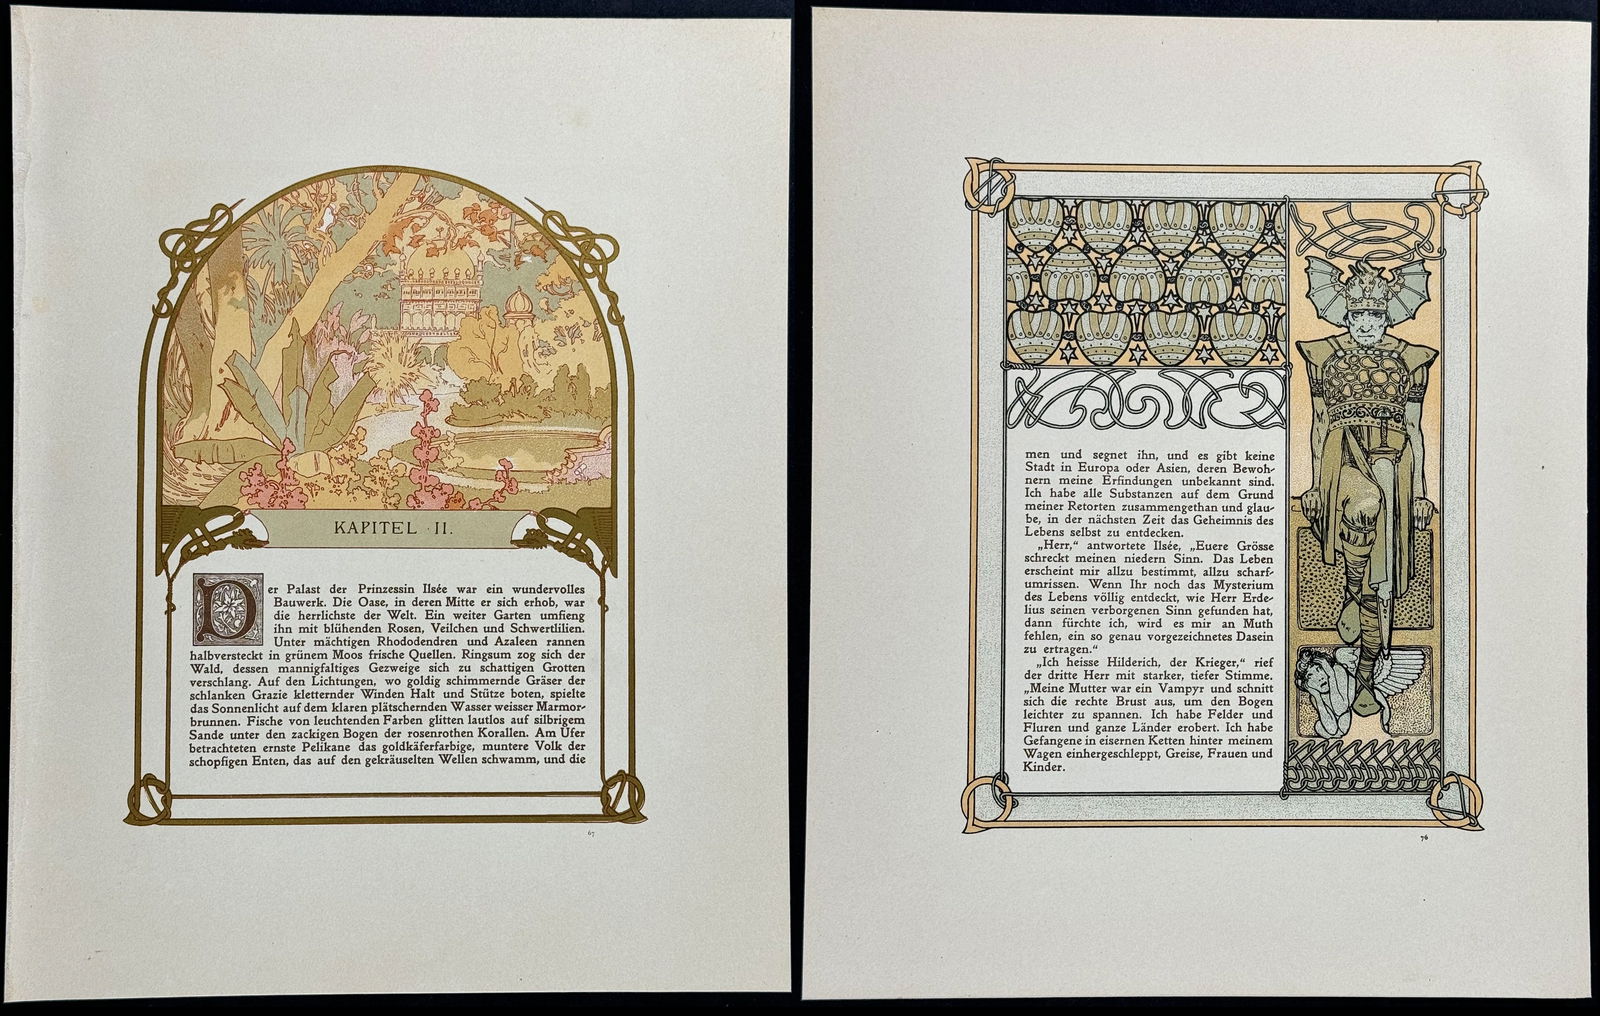 KAPITEL · II.
Der Palast der Prinzessin Ilsée war ein wundervolles
Bauwerk. Die Oase, in deren Mitte er sich erhob, war
die herrlichste der Welt. Ein weiter Garten umfieng
ihn mit blühenden Rosen, Veilchen und Schwertlilien.
Unter mächtigen Rhododendren und Azaleen rannen
halbversteckt in grünem Moos frische Quellen. Ringsum zog sich der
Wald, dessen mannigfaltiges Gezweige sich zu schattigen Grotten
verschlang. Auf den Lichtungen, wo goldig schimmernde Gräser der
schlanken Grazie kletternder Winden Halt und Stütze boten, spielte
das Sonnenlicht auf dem klaren plätschernden Wasser weisser Marmor-
brunnen. Fische von leuchtenden Farben glitten lautlos auf silbrigem
Sande unter den zackigen Bogen der rosenrothen Korallen. Am Ufer
betrachteten ernste Pelikane das goldkäferfarbige, muntere Volk der
schopfigen Enten, das auf den gekräuselten Wellen schwamm, und die
67
men und segnet ihn, und es gibt keine
Stadt in Europa oder Asien, deren Bewoh-
nern meine Erfindungen unbekannt sind.
Ich habe alle Substanzen auf dem Grund
meiner Retorten zusammengethan und glau-
be, in der nächsten Zeit das Geheimnis des
Lebens selbst zu entdecken.
„Herr,“ antwortete Ilsée, „Euere Grösse
schreckt meinen niedern Sinn. Das Leben
erscheint mir allzu bestimmt, allzu scharf-
umrissen. Wenn Ihr noch das Mysterium
des Lebens völlig entdeckt, wie Herr Erde-
lius seinen verborgenen Sinn gefunden hat,
dann fürchte ich, wird es mir an Muth
fehlen, ein so genau vorgezeichnetes Dasein
zu ertragen.“
„Ich heisse Hilderich, der Krieger,“ rief
der dritte Herr mit starker, tiefer Stimme.
„Meine Mutter war ein Vampyr und schnitt
sich die rechte Brust aus, um den Bogen
leichter zu spannen. Ich habe Felder und
Fluren und ganze Länder erobert. Ich habe
Gefangene in eisernen Ketten hinter meinem
Wagen einhergeschleppt, Greise, Frauen und
Kinder.
76